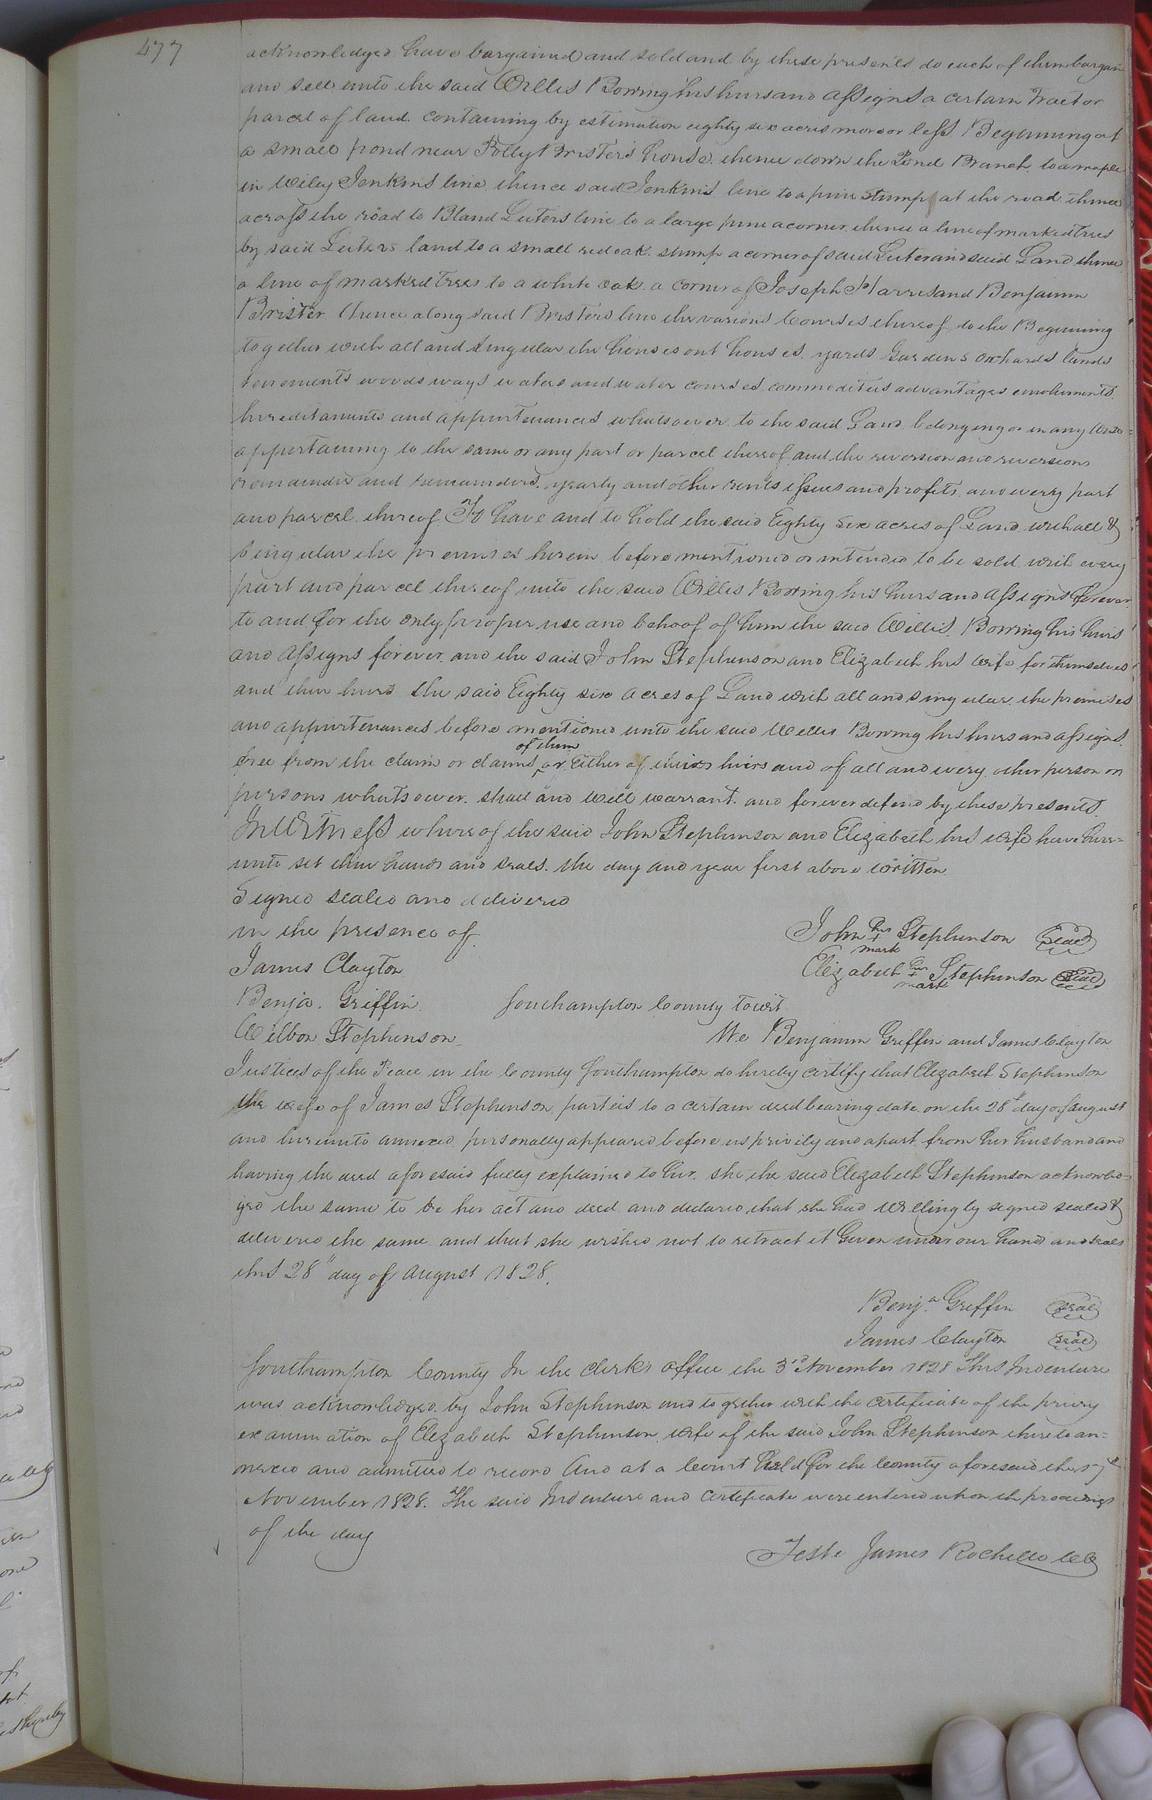 477
acknowledged have bargained and sold and by these presents do each of them bargain
and sell unto the said Willis Bowing his heirs and assigns a certain tract or
parcel of land containing by estimation eighty six acres more or less Beginning at
a small pond near Polly Bristers house. thence down the Pond Branch to a maple
in Wiley Jenkins line thence said Jenkins line to a pine stump at the road thence
across the road to Bland Luters line to a large pine a corner thence a line of marked trees
by said Luters land to a small red oak stump a corner of said Luter and said Land thence
a line of marked trees to a white oak a corner of Joseph Harris and Benjamin
Brister thence along said Bristers line the various courses thereof to the Beginning
together with all and singular the houses out houses yards Gardens orchards lands
tenements woods ways waters and water courses commodities advantages emoluments
hereditaments and appurtenances whatsoever to the said Land belonging or in any wise
appertaining to the same or any part or parcel thereof and the reversion and reversions
remainder and remainders yearly and other rents issues and profits and every part
and parcel thereof To have and to hold the said Eighty six acres of Land with all &
singular the premises herein before mentioned or intended to be sold with every
part and parcel thereof unto the said Willis Bowing his heirs and assigns forever
to and for the only proper use and behoof of him the said Willis Bowing his heirs
and assigns forever and the said John Stephenson and Elizabeth his wife for themselves
and their heirs the said Eighty six acres of Land with all and singular the premises
and appurtenances before mentioned unto the said Willis Bowing his heirs and assigns
of them
free from the claim or claims or Either of their heirs and of all and every other person or
persons whatsoever. shall and will warrant and forever defend by these presents
In Witness whereof the said John Stephenson and Elizabeth his wife have here=
unto set their hands and seals. the day and year first above written
Signed sealed and delivered
in the presence of
John his + mark Stephenson (seal)
James Clayton
Elizabeth her + mark Stephenson (seal)
Benja. Griffin
Southampton County towit
Wilbon Stephenson
We Benjamin Griffin and James Clayton
Justices of the Peace in the County Southampton do hereby certify that Elizabeth Stephenson
the wife of James Stephenson parties to a certain deed bearing date on the 28th day of August
and hereunto annexed personally appeared before us privily and apart from her husband and
having the deed aforesaid fully explained to her. she the said Elizabeth Stephenson acknowled-
ged the same to be her act and deed and declared that she had willingly signed sealed &
delivered the same and that she wished not to retract it Given under our hand and seals
this 28th day of August 1828.
Benja Griffin (seal)
James Clayton (seal)
Southampton County In the clerks office the 3rd November 1828 This Indenture
was acknowledged by John Stephenson and together with the certificate of the privy
examination of Elizabeth Stephenson wife of the said John Stephenson thereto an=
nexed and admitted to record And at a Court Held for the County aforesaid the 17th
November 1828. The said Indenture and certificate were entered upon the proceedings
of the day
Teste James Rochelle CC